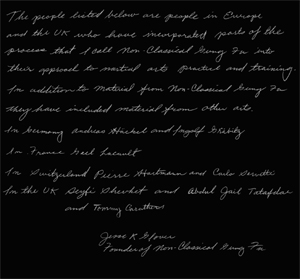 The people listed below are people in Europe
and the UK who have incorporated parts of the
process that I call Non-Classical Gung Fu into
their approach to martial arts practice and training.
In addition to material from Non-Classical Gung Fu
they have included material from other arts.
In Germany Andreas and
In France Gael
In Switzerland Pierre Hartmann and Carlo
In the UK Seyfi Shevket and Abdul Jail
and Tommy Carruthers
Jesse R Glover
Founder of Non-Classical Gung Fu